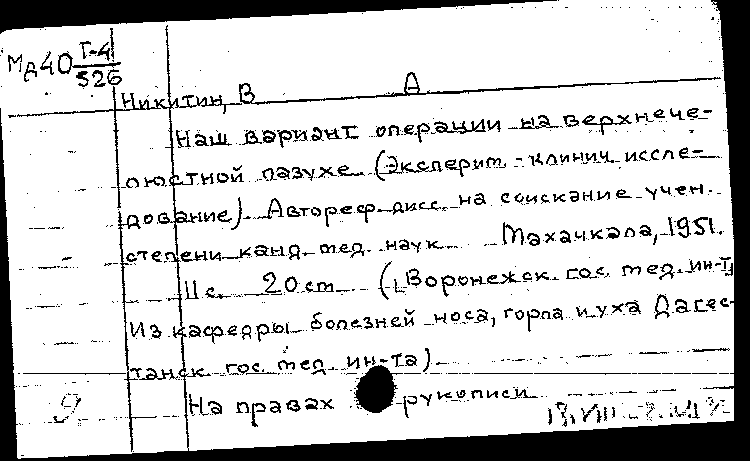 Мд40 Г-4
526
Никитин, В А
Наш вариант операции на верхнече-
люстной пазухе. (Эксперим.-клинич. иссле-
дование). Автореф. дисс. на соискание учен.
степени канд. мед. наук Махачкала, 1951.
11 с. 20 см (Воронежск. гос. мед. ин-т
Из кафедры болезней носа, горла и уха Дагес-
танск. гос. мед. ин-та).
9. На правах рукописи